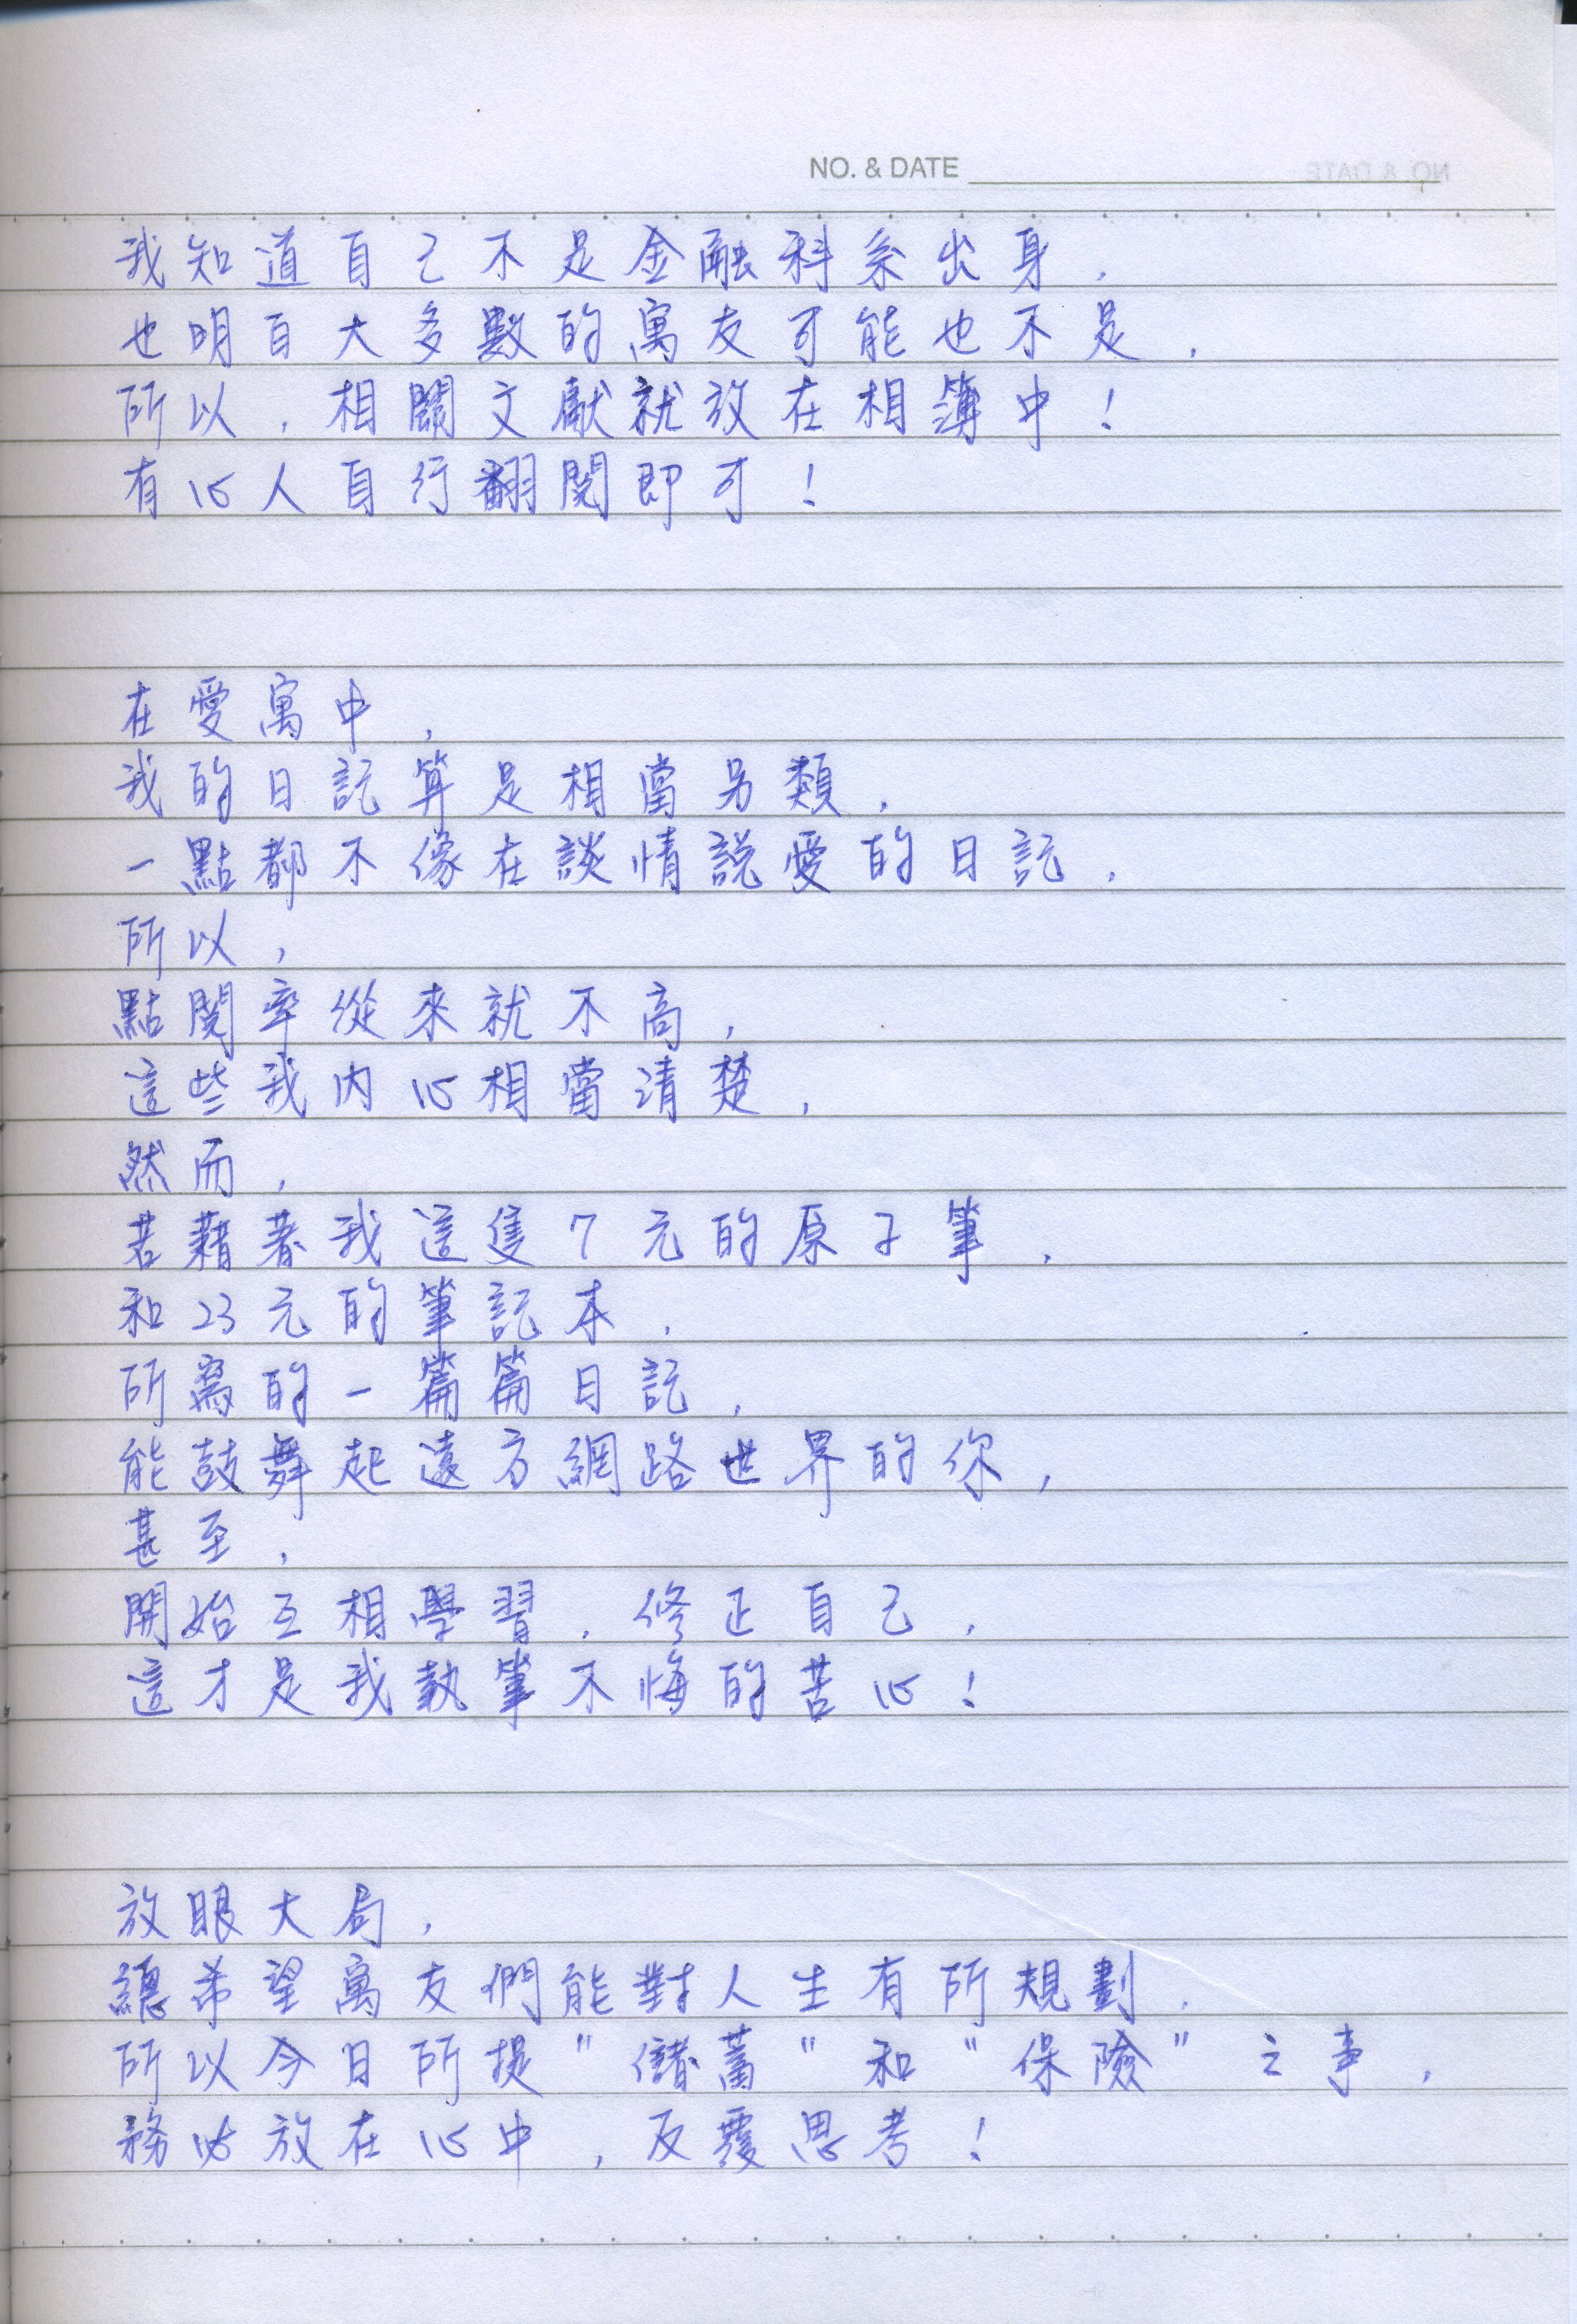 NO. & DATE
我知道自己不是金融科系出身，
也明白大多數的寓友可能也不是，
所以，相關文獻就放在相簿中！
有心人自行翻閱即可！
在愛寓中，
我的日記算是相當另類，
一點都不像在談情說愛的日記，
所以，
點閱率從來就不高，
這些我內心相當清楚，
然而，
若藉著我這隻7元的原子筆，
和23元的筆記本，
所寫的一篇篇日記，
能鼓舞起遠方網路世界的你，
甚至，
開始互相學習，修正自己，
這才是我執筆不悔的苦心！
放眼大局，
總希望寓友們能對人生有所規劃，
所以今日所提"儲蓄"和"保險"之事，
務必放在心中，反覆思考！